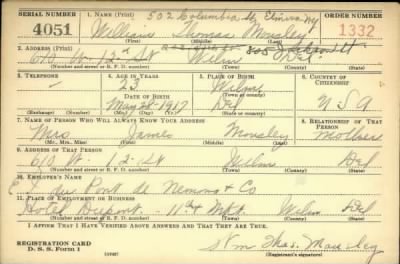 SERIAL NUMBER 1. NAME (Print) 502 Columbia St, Elmira, NY ORDER NUMBER
4051 William Thomas Mousley 1332
(First) (Middle) (Last)
2. ADDRESS (Print) 805 Jackson St
610 W- 12th St Wilm Del.
(Number and street or R. F. D. number) (Town) (County) (State)
3. TELEPHONE 4. AGE IN YEARS 5. PLACE OF BIRTH 6. COUNTRY OF CITIZENSHIP
- 23 Wilm
DATE OF BIRTH (Town or county)
May 28-1917 Del USA
(Exchange) (Number) (Mo.) (Day) (Yr.) (State or country)
7. NAME OF PERSON WHO WILL ALWAYS KNOW YOUR ADDRESS 8. RELATIONSHIP OF THAT PERSON
Mrs James Mousley Mother
(Mr., Mrs., Miss) (First) (Middle) (Last)
9. ADDRESS OF THAT PERSON
610 W. 12-St Wilm Del
(Number and street or R. F. D. number) (Town) (County) (State)
10. EMPLOYER'S NAME
E I du Pont de Nemours & Co
11. PLACE OF EMPLOYMENT OR BUSINESS
Hotel Dupont - 11th & Mkt Wilm Del
(Number and street or R. F. D. number) (Town) (County) (State)
I AFFIRM THAT I HAVE VERIFIED ABOVE ANSWERS AND THAT THEY ARE TRUE.
REGISTRATION CARD
D. S. S. Form 1 Wm Thos. Mousley
(Registrant's signature)